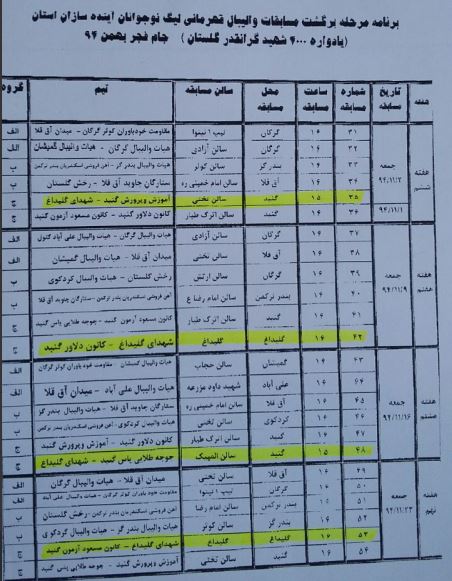 برنامه مرحله برگشت مسابقات والیبال قهرمانی لیگ نوجوانان آینده سازان استان
(یادواره ۴۰۰۰ شهید گرانقدر گلستان) جام فجر بهمن ۹۴
هفته تاریخ مسابقه شماره مسابقه ساعت مسابقه محل مسابقه سالن مسابقه تیم گروه
هفته ششم جمعه ۹۴/۱۱/۲
۳۱ ۱۶ گرگان تیپ ۱ نینوا مقاومت خودیاوران کوثر گرگان - میدان آق قلا الف
۳۲ ۱۶ گرگان سالن آزادی هیات والیبال گرگان - هیات والیبال گمیشان الف
۳۳ ۱۶ بندر گز سالن کوثر هیات والیبال بندر گز - آهن فروشی اسکندریان بندر ترکمن ب
۳۴ ۱۶ آق قلا سالن امام خمینی ره ستارگان جاوید آق قلا - رخش گلستان ب
۳۵ ۱۵ گنبد سالن تختی آموزش وپرورش گنبد - شهدای گلیداغ ج
۹۴/۱۱/۱ ۳۶ ۱۶ گنبد سالن اترک طیار کانون دلاور گنبد - کانون مسعود آزمون گنبد ج
هفته جمعه ۹۴/۱۱/۹
۳۷ ۱۶ گرگان سالن آزادی هیات والیبال گرگان - هیات والیبال علی آباد کتول الف
۳۸ ۱۶ آق قلا سالن تختی میدان آق قلا - هیات والیبال گمیشان الف
۳۹ ۱۶ گرگان سالن ارتش رخش گلستان - هیات والیبال کردکوی ب
۴۰ ۱۶ بندر ترکمن سالن امام رضا ع آهن فروشی اسکندریان بندر ترکمن - ستارگان جاوید آق قلا ب
۴۱ ۱۶ گنبد سالن اترک طیار کانون مسعود آزمون گنبد - جوجه طلایی یاس گنبد ج
۴۲ ۱۶ گلیداغ گلیداغ شهدای گلیداغ - کانون دلاور گنبد ج
هفته هشتم جمعه ۹۴/۱۱/۱۶
۴۳ ۱۶ گمیشان سالن حجاب هیات والیبال گمیشان - مقاومت خود یاوران کوثر گرگان الف
۴۴ ۱۶ علی آباد شهید داود مزرعه هیات والیبال علی آباد - میدان آق قلا الف
۴۵ ۱۶ آق قلا سالن امام خمینی ره ستارگان جاوید آق قلا - هیات والیبال بندر گز ب
۴۶ ۱۶ کردکوی سالن تختی هیات والیبال کردکوی - آهن فروشی اسکندریان بندر ترکمن ب
۴۷ ۱۶ گنبد سالن اترک طیار کانون دلاور گنبد - آموزش وپرورش گنبد ج
۴۸ ۱۵ گنبد سالن المپیک جوجه طلایی یاس گنبد - شهدای گلیداغ ج
هفته نهم جمعه ۹۴/۱۱/۲۳
۴۹ ۱۶ آق قلا سالن تختی میدان آق قلا - هیات والیبال گرگان الف
۵۰ ۱۶ گرگان تیپ ۱ نینوا مقاومت خود یاوران کوثر گرگان - هیات والیبال علی آباد الف
۵۱ ۱۶ بندر ترکمن سالن امام رضا آهن فروشی اسکندریان بندر ترکمن - رخش گلستان ب
۵۲ ۱۶ بندر گز سالن کوثر هیات والیبال بندر گز - هیات والیبال کردکوی ب
۵۳ ۱۶ گلیداغ گلیداغ شهدای گلیداغ - کانون مسعود آزمون گنبد ج
۵۴ ۱۶ گنبد سالن تختی آموزش وپرورش گنبد - جوجه طلایی یاس گنبد ج